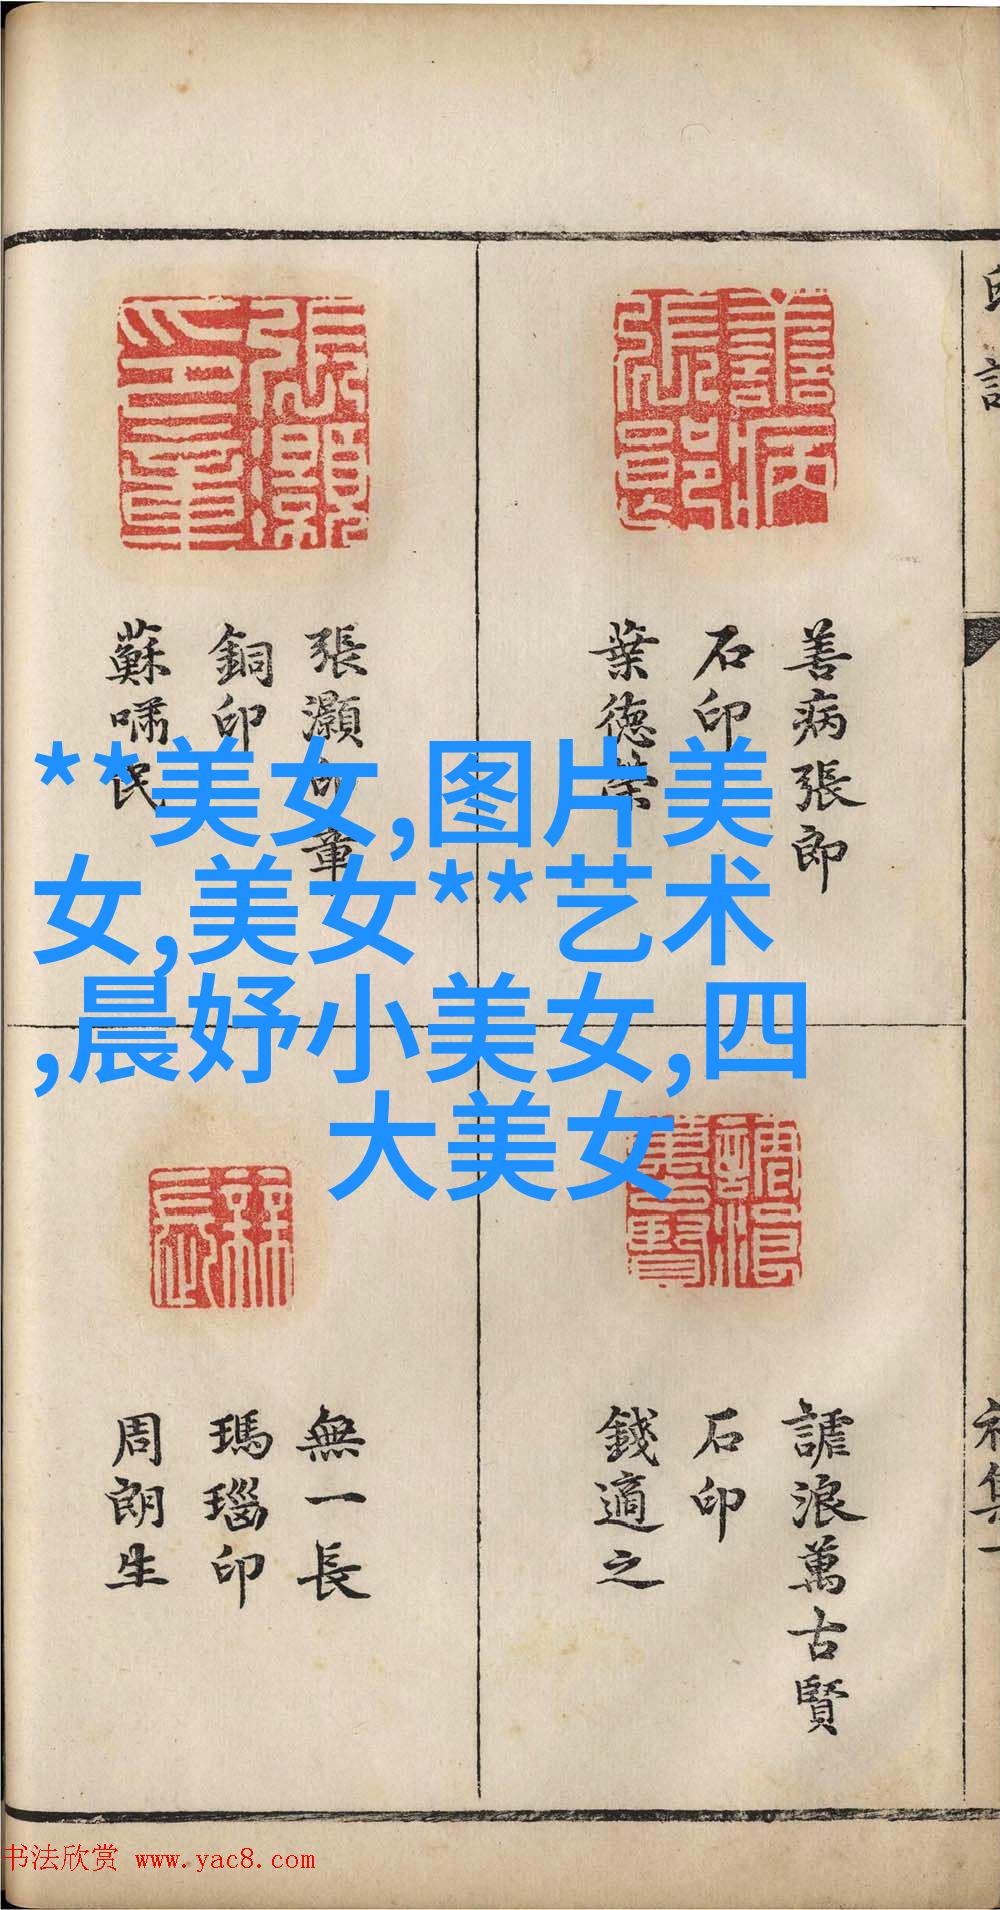 善病張郎
石印
葉德榮
張灝印章
銅印
蘇嘯民
**美女,图片美
女,美女**艺术
,晨妤小美女,四
大美女
謔浪萬古賢
石印
錢適之
無一長
瑪瑙印
周朗生
初集一
书法欣赏 www.yac8.com